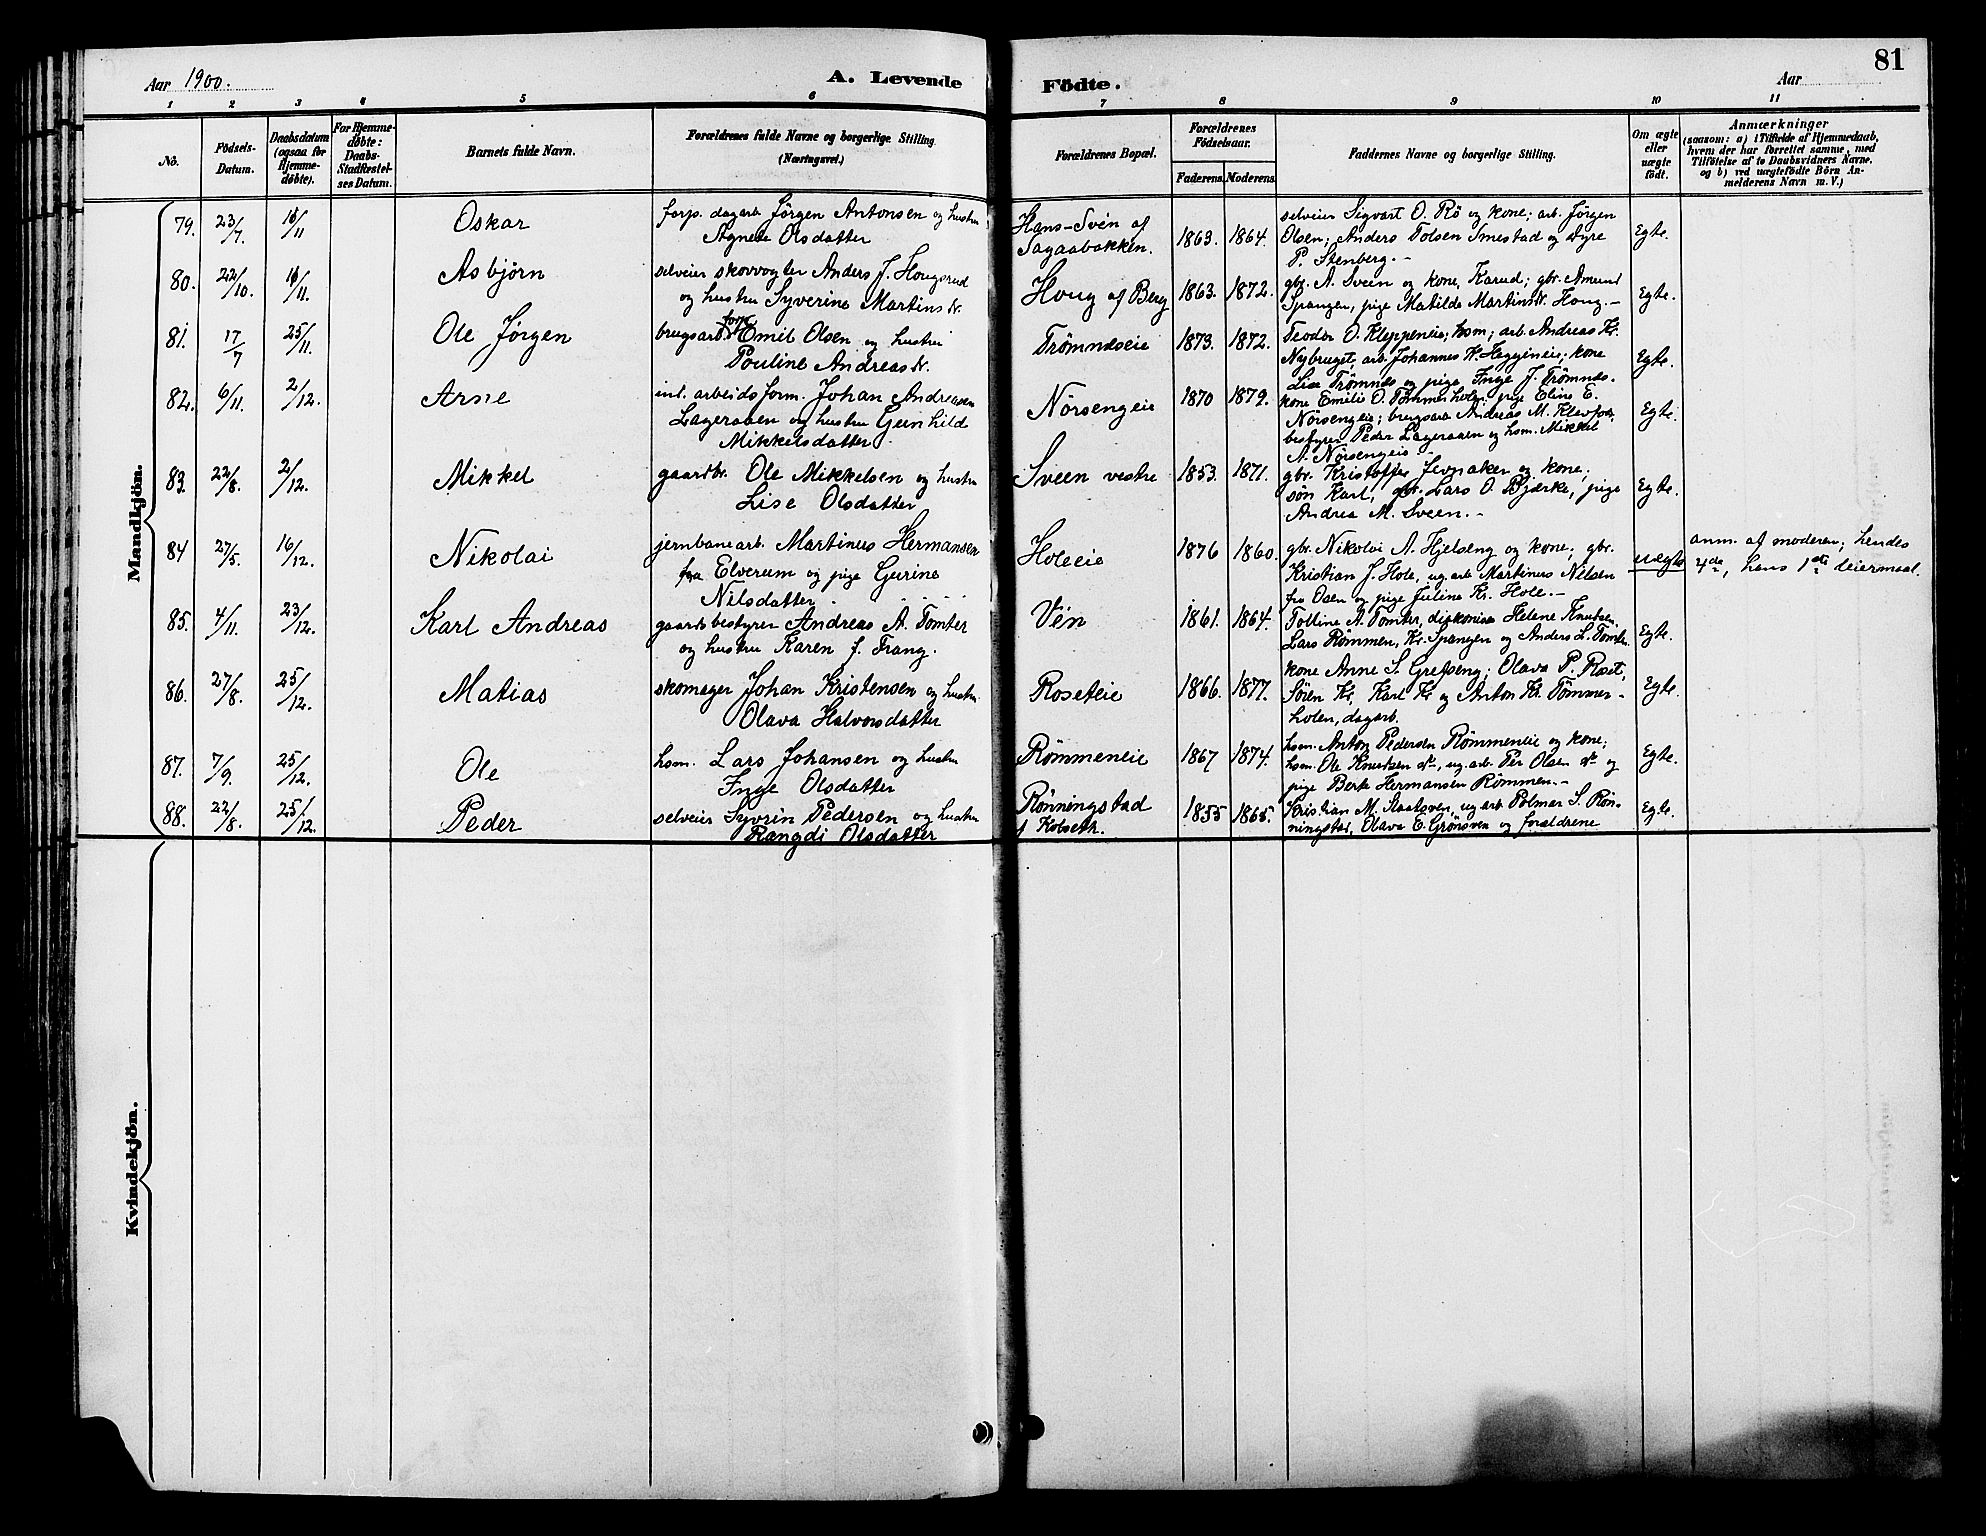 Aar 1900.
A. Levende
Födte.
Aar
81
1 2 3 4 5 6 7 8 9 10 11
No.
Födsels-Datum.
Daabsdatum (ogsaa for Hjemme-döbte).
For Hjemme-döbte: Daabs-Stadfæstel-ses Datum.
Barnets fulde Navn.
Forældrenes fulde Navne og borgerlige Stilling.
(Næringsvei.)
Forældrenes Bopæl.
Forældrenes Födselsaar.
Faderens. Moderens.
Faddernes Navne og borgerlige Stilling.
Om ægte eller uægte födt.
Anmærkninger
(saasom: a) i Tilfælde af Hjemmedaab,
hvem der har forrettet samme, med
Tilföielse af to Daabsvidners Navne,
og b) ved uægtefödte Börn An-
melderens Navn m. V.)
Mandkjön.
79. 23/7. 18/11 Oskar
forp. dagarb. Jørgen Antonsen og hustru
Agnete Olsdatter
Hans-Svén af
Sagaabakken.
1863. 1864.
selveier Sigvart O. Rö og kone; arb. Jörgen
Olsen; Anders Tolsen Smestad og Dyre
P. Stenberg.-
Egte.
80. 22/10. 18/11. Asbjörn
selveier skovvogter Anders J. Hougsrud
og hustru Syverine Martinsdr.
Houg af Berg
1863. 1872.
gbr. A. Svein og kone, Karud; gbr. Amund
Spangen, pige Matilde Martinsdr. Houg.-
Egte.
81. 17/7 25/11. Ole Jørgen
brugsarb. Emil Olsen og hustru
Pouline Andreasdr.
Trömndseie
1873. 1872.
Teodor O. Kleppeneie; hsm; arb. Andreas Kr.
Nybruget, arb. Johannes H. Heggineie; kone
Lise Trömnds og pige Inge J. Trömnds.
Egte.
82. 6/11. 2/12. Arne
int. arbeidsform. Johan Andreasen
Lageraaen og hustru Gunhild
Mikkelsdatter.
Nörsengeie
1870 1879.
kone Emilie O. Tömmerholen; pige Eline E.
Nörsengeie; brugsarb. Andreas M. Klevfos
bestyrer Peder Lageraaen og hsm. Mikkel
A. Nörsengeie.
Egte.
83. 22/8. 2/12. Mikkel
gaardbr. Ole Mikkelsen og hustru
Lise Olsdatter
Sveen vestre
1853. 1871.
gbr. Kristoffer Jevnaker og kone;
sön Karl, gbr. Lars O. Bjærke, pige
Andrea M. Sveen.-
Egte.
84 27/5. 16/12. Nikolai
jernbanearb. Martinus Hermansen
fra Elverum og pige Gurine
Nilsdatter.
Holeeie
1876 1860.
gbr. Nikolai A. Hjelseng og kone; gbr.
Kristian J. Hole, ug. arb. Martinus Nilsen
fra Osen og pige Juline Kr. Hole.-
uægte
anm. af moderen; hendes
4de, hans 1ste leiermaal.
85. 4/11. 23/12. Karl Andreas
gaardsbestyrer Andreas A. Tomter
og hustru Karen f. Frang.
Vén
1861. 1864.
Tolline A. Tomter, diakonisse Helene Knutsen,
Lars Römmen, Kr. Spangen og Anders L. Tomter.
Egte.
86. 27/8. 25/12. Matias
skomager Johan Kristensen og hustru
Olava Halvorsdatter
Roseteie
1866. 1877.
kone Anne S. Grefseng; Olava P. Roset,
Sören Kr, Karl Kr og Anton Kr. Tömmer-
holen, dagarb.
Egte.
87. 7/9. 25/12. Ole
hsm. Lars Johansen og hustru
Inge Olsdatter
Römmeneie
1867 1874.
hsm. Anton Pedersen Römmeneie og kone;
hsm. Ole Knutsen do, ug. arb. Per Olsen do og
pige Berte Hermansen Römmen.-
Egte.
88. 22/8. 25/12. Peder
selveier Syvrin Pedersen og hustru
Rangdi Olsdatter
Rönningstad
f Kolseth.
1855 1865.
Kristian M. Staatsven, ug. arb. Polmar S. Rön-
ningstad, Olava E. Grönsven og forældrene
Egte.
Kvindekjön.